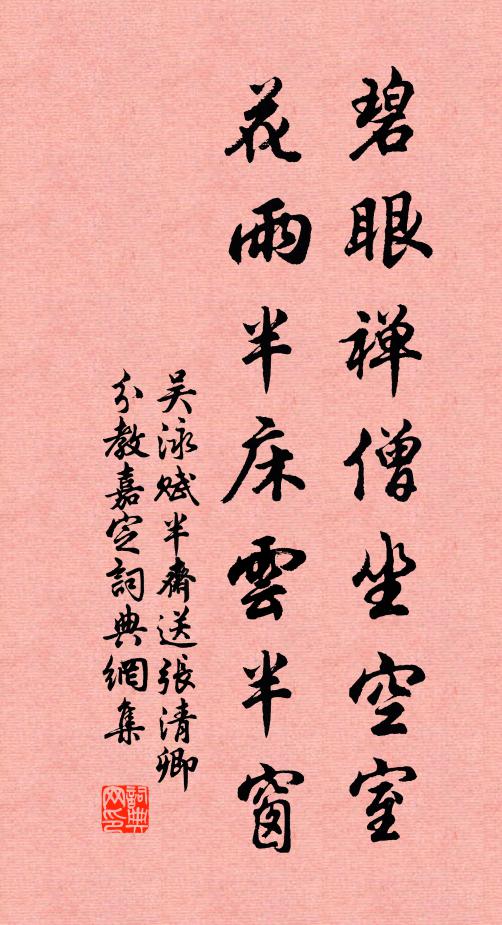 碧眼禅僧坐空室
花雨半床雲半窗
吴泳赋半齋送張清卿
分教嘉定詞典網集
詞典网印